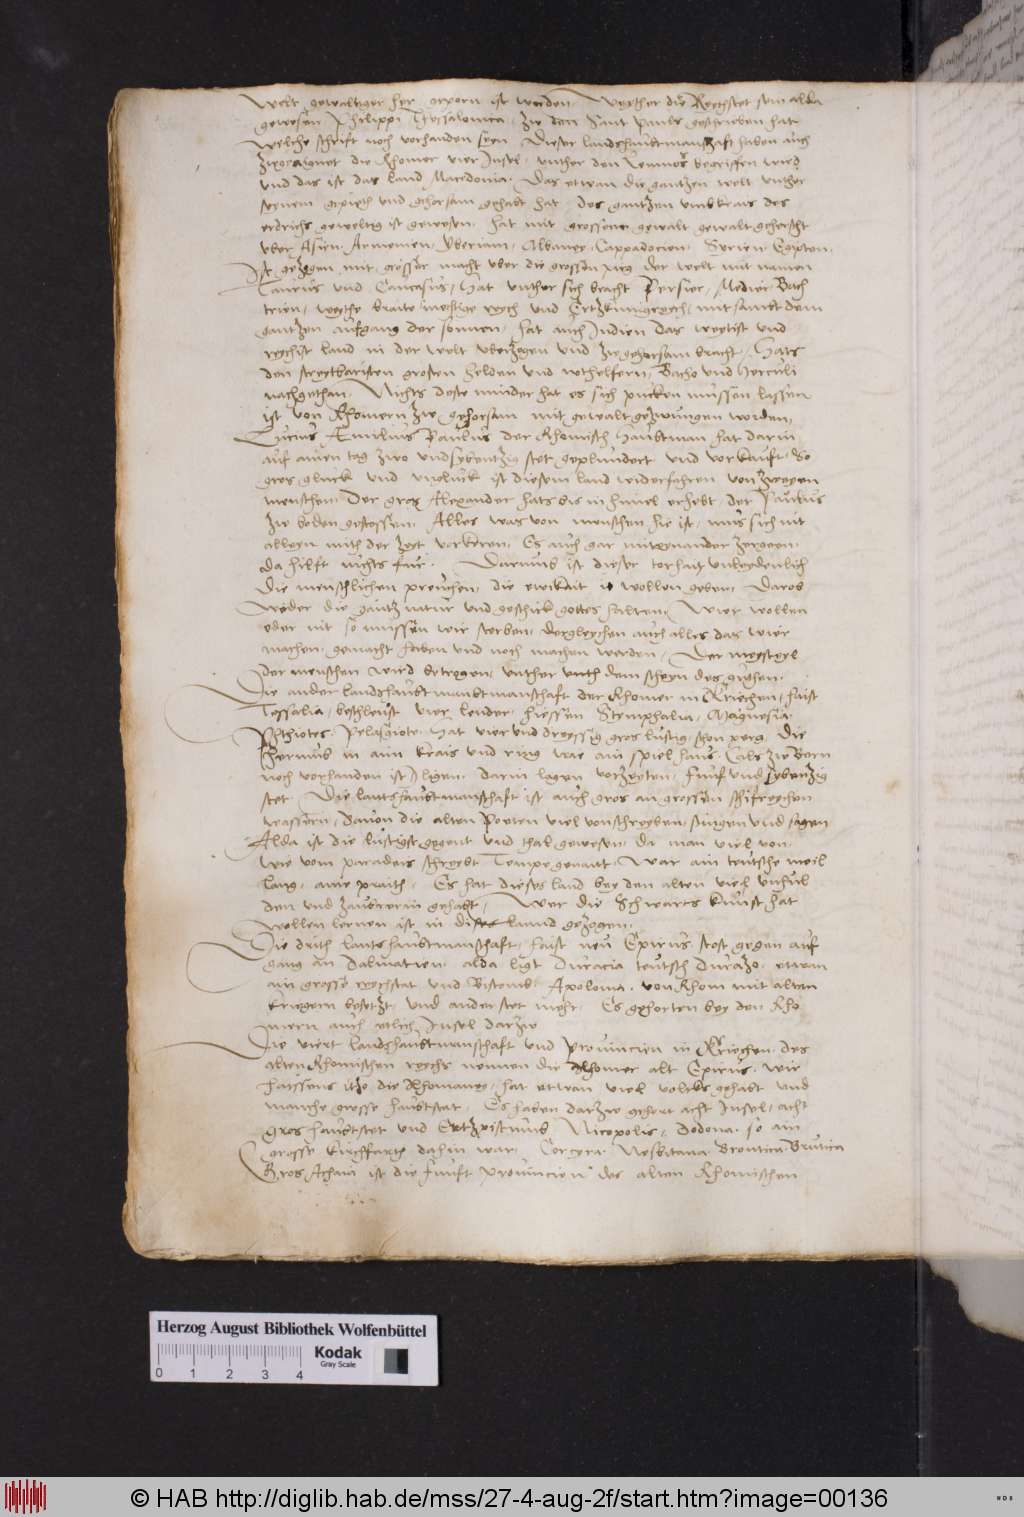 welt gewaltiger her geporn ist worden. Weyther die Reychstet sein alda
gewesen Philippi Thessalonica, zw den Sant Pauls geschrieben hat
welche schrift noch vorhanden seyn. Dieser landshaubtmanschaft haben auch
die Rhomer vier Insel, unther den Lemnos begriffen wird
und das ist das land Macedonia. Das etwan die gantzen welt unther
seynem gepieth und gehorsam gehabt hat, des gantzen umbkrais des
erdrichs geweltig ist gewesen, hat mit grossem gewalt gewalt geherscht
uber Asien, Armenien, Yberiam, Albaney, Cappadocien, Surien Egipten.
Ist gezogen mit grosser macht uber die grossen perg der welt mit namen
Taurus und Caucasus, Hat unther sich bracht Persier, Medier Bach
trien, weythe braite mechtige reych und Ertzkunigreych, mit sambt dem
gantzen aufgang der sonnen, hat auch Indien das weytist und
reychist land in der welt uberzogen und zw gehorsam bracht, Hats
den streytbaristen grosten helden und nothelfern, Bacho und Herculi
nachgethan. Nichts desto minder hat es sich pucken mussen lassen
ist von Rhomern zw gehorsam mit gewalt gezwungen worden,
Lucius Aemilius Paulus der Rhomisch Haubtman hat darin
auf ainen tag zwo und sybentzig stet geplundert und vorkauft. So
gros gluck und ungluck ist diesem land widerfahren von zweyen
menschen. Der gros Alexander hats bis in himel erhebt, der Paulus
zw boden gestossen. Alles was von menschen hie ist, mus sich nit
alleyn mith der zeyt verkeren. Es auch gar miteynander zergeen.
da hilft nichts fur. Darumb ist dieser torhait unleydenlich
die menschlichen preuchen, die ewikait wollen geben, Darob
weder die gantz natur und geschick gottes halten, Wier wollen
oder nit so mussen wir sterben, dergleychen auch alles das wier
machen, gemacht haben und noch machen werden, Der maysteyl
der menschen wird betrogen, unther dem scheyn des guthen.
Die ander landshaubtmanschaft der Rhomer in Kriechen, haist
Tessalia, beschleust vier lender, hiessen Stemphalia, Magnesia
Phthiotes, Pelasgiote. Hat vier und dreyssig gros lustig schon perg. Die
herumb in ain krais und ring wie ain spiel haus, Cals zw Bern
noch vorhanden ist) ligen. Darin lagen vorzeyten, funf und sybenzig
stet. Die lantshaubtmanschaft ist auch gros an grossen schifreychen
wassern, Davon die alten Poeten viel vonschreyben, singen und sagen
Alda ist die lustigst gegent und thal gewesen, da man viel von
wie vom paradeis schreybt Tempe genant. War ain teutsche meil
lang, aine praith. Es hat dieses land bey den alten viel unhul
den und zauberein gehabt, Wer die Schwarts kunst hat
wollen lernen ist in dises lannd gezogen.
Die drith lantshaubtmanschaft, haist neu Epirus, stost gegen auf
gang an Dalmatien, alda ligt Duracia teutsch Durazo, etwan
ain grosse reychstat und Bistumb, Apolonia, von Rhom mit alten
kriegern besetzt, und ander stet mehr. Es gehorten bey den Rho
mern auch etlich Insel darzw
Die viert landshaubtmanschaft und provincien in Kriechen, des
alten Rhomischen reychs nennen die Rhomer alt Epirus, wir
haissens itzo die Rhomaney, hat etwan viel volcks gehabt und
manche grosse haubtstat. Es haben darzw gehort acht Insel, acht
gros haubtstet und Ertzpistumb, Nicopolis, Dodona, so ain
grosse kirchfarth dahin war, Corcyra
Gros Achaia ist die funft provincien des alten Rhomischen
Herzog August Bibliothek Wolfenbüttel
Kodak
Gray Scale
0 1 2 3 4
© HAB http://diglib.hab.de/mss/27-4-aug-2f/start.htm?image=00136